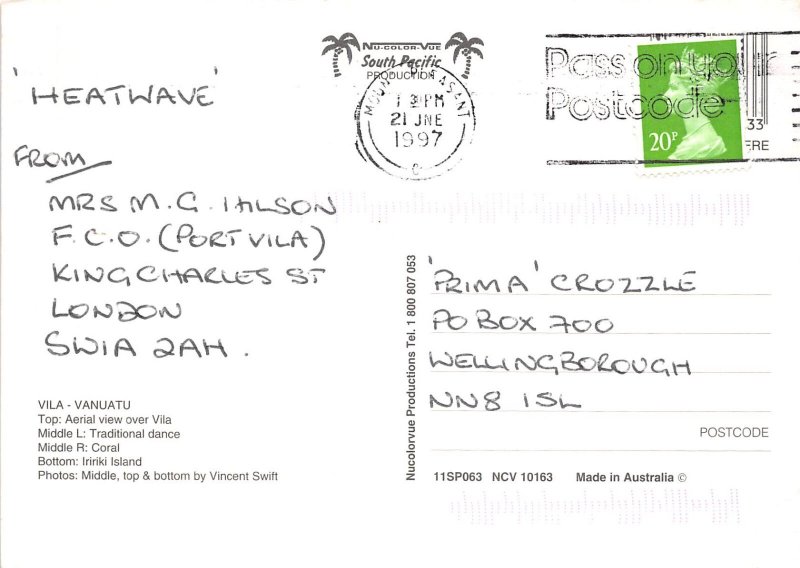 NU-COLOR-VUE
South Pacific
PRODUCTION
'HEATWAVE'
FROM
MRS M. G. IHLSON
F.C.O. (PORT VILA)
KING CHARLES ST
LONDON
SW1A 2AH.
VILA - VANUATU
Top: Aerial view over Vila
Middle L: Traditional dance
Middle R: Coral
Bottom: Iririki Island
Photos: Middle, top & bottom by Vincent Swift
MOUNT PLEASANT
PM
21 JNE
1997
Pass on your
Postcode
20P
33
ERE
Nucolorvue Productions Tel. 1 800 807 053
'PRIMA' CROZZLE
PO BOX 700
WELLINGBOROUGH
NN8 1SL
POSTCODE
11SP063 NCV 10163 Made in Australia ©